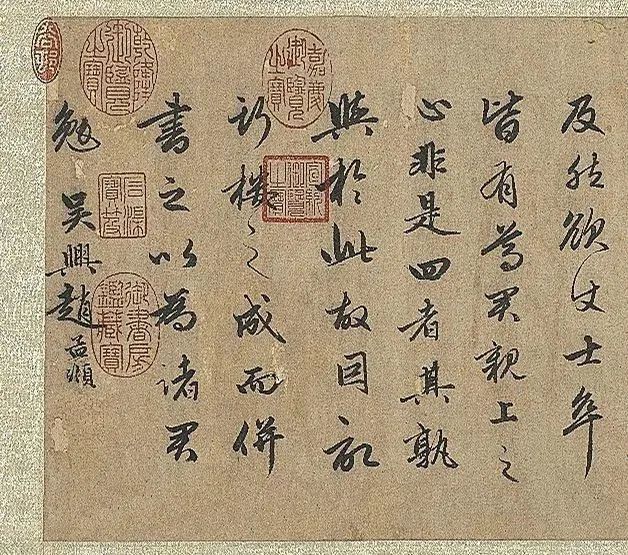 及然欲使士卒
皆有尊君親上之
心非是四者其孰
與於此故因記
斯樓之成而併
書之以為諸君
勉吴興趙孟頫
嘉慶御覽之寶
宣統御覽之寶
乾隆御覽之寶
石渠寶笈
御書房鑑藏寶